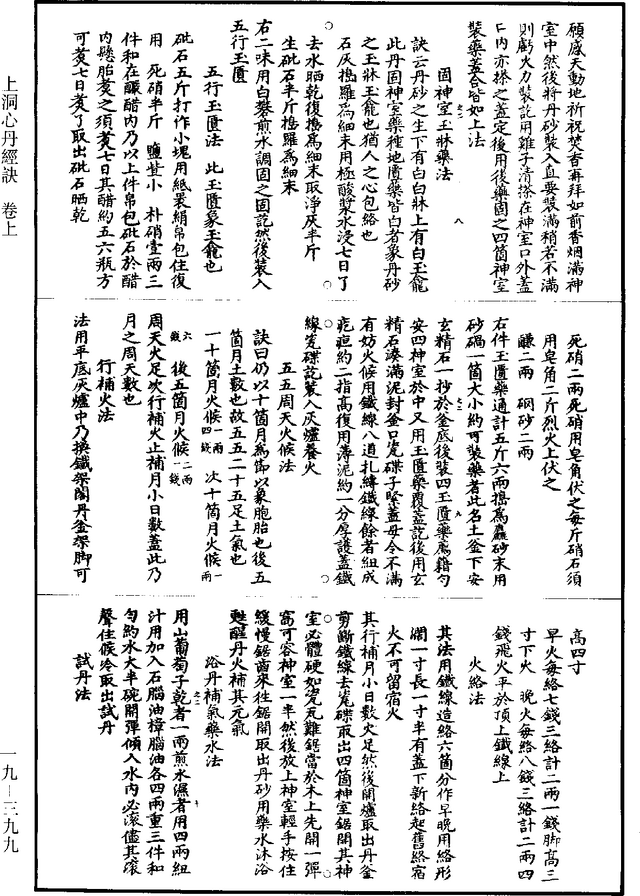 願感天動地祈祝焚香再拜如前香烟滿神
室中然後將丹砂裝入直要裝滿稍若不滿
則虧火力裝訖用雞子清搽在神室口外蓋
口内亦搽之蓋定後用後藥固之四箇神室
裝藥蓋合皆如上法
固神室玉牀藥法
訣云丹砂之生下有白白牀上有白玉龕
此丹固神室藥種地匱藥皆白者象丹砂
之玉牀玉龕也猶人之心包絡也
石灰擣羅爲細末用極酸漿水浸七日了
去水晒乾復擣爲細末取淨灰半斤
生砒石半斤擣羅爲細末
右二味用白礬煎水調固之固訖然後裝入
五行玉匱
五行玉匱法　此玉匱象玉龕也
砒石五斤打作小塊用紙裹絹帛包住復
用　死硝半斤　鹽　小　朴硝壹兩三
件和在釅醋内乃以上件帛包砒石於醋
内懸胎煑之須煑七日其醋約五六瓶方
可煑七日煑了取出砒石晒乾
死硝二兩死硝用皂角伏之每斤硝石須
用皂角二斤烈火上伏之
䃃二兩　硇砂二兩
右件玉匱藥通計五斤六兩擣爲麤砂末用
砂礍一箇大小約可裝藥者此名土釜下安
玄精石一抄於釜底後裝四玉匱藥薦藉勻
安四神室於中又用玉匱藥覆蓋訖後用玄
精石湊滿泥封釜口瓷碟子緊蓋毋令不滿
有妨火候用鐵線八道扎縛鐵線餘者組成
疙疸約二指高復用薄泥約一分厚護蓋鐵
線瓷碟訖裝入灰爐養火
五五周天火候法
訣曰仍以十箇月爲節以象胞胎也後五
箇月土數也故五五二十五足土氣也
一十箇月火候一兩四錢　次十箇月火候一兩
六錢　後五箇月火候二兩一錢
周天火足次行補火止補月小日數蓋此乃
月之周天數也
行補火法
法用平底灰爐中乃換鐵架閣丹釜架脚可
高四寸
早火每絡七錢三絡計二兩一錢脚高三
寸下火　晚火每絡八錢三絡計二兩四
錢飛火平於頂上鐵線上
火絡法
其法用鐵線造絡六箇分作早晚用絡形
濶一寸長一寸半有蓋下新絡起舊絡宿
火不可留宿火
其行補月小日數火足然後開爐取出丹釜
剪斷鐵線去瓷碟取出四箇神室鋸開其神
室必體硬如瓷瓦難鋸當於木上先開一彈
窩可容神室一半然後放上神室輕手按住
緩慢鋸齒來往鋸開取出丹砂用藥水沐浴
甦醒丹火補其元氣
浴丹補氣藥水法
用山葡萄子乾者一兩煎水濕者用四兩紐
汁用加入石腦油樟腦油各四兩重三件和
勻約水大半碗開彈傾入水内必滚儘其滚
聲住候冷取出試丹
試丹法
上洞心丹經訣　卷上
一九—三九九